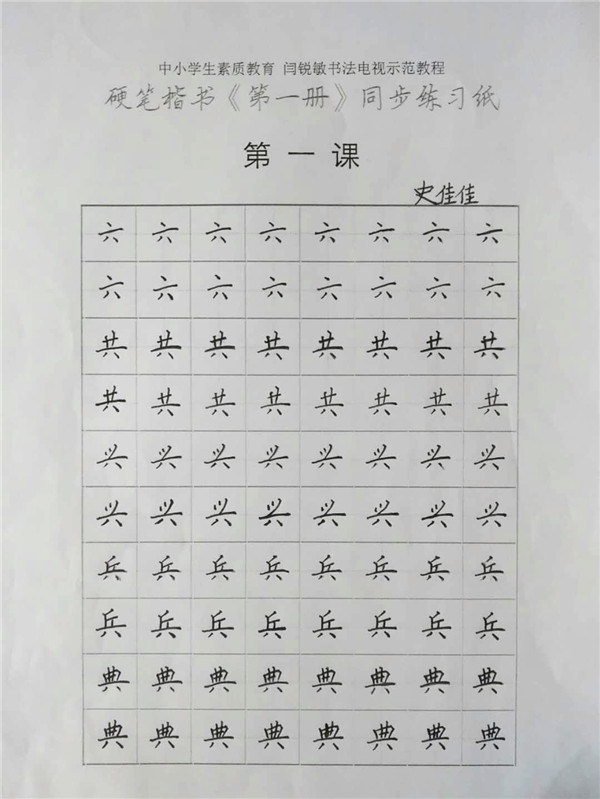 中小学生素质教育 闫锐敏书法电视示范教程
硬笔楷书《第一册》同步练习纸
第一课
史佳佳
六六六六六六六六
六六六六六六六六
共共共共共共共共
共共共共共共共共
兴兴兴兴兴兴兴兴
兴兴兴兴兴兴兴兴
兵兵兵兵兵兵兵兵
兵兵兵兵兵兵兵兵
典典典典典典典典
典典典典典典典典